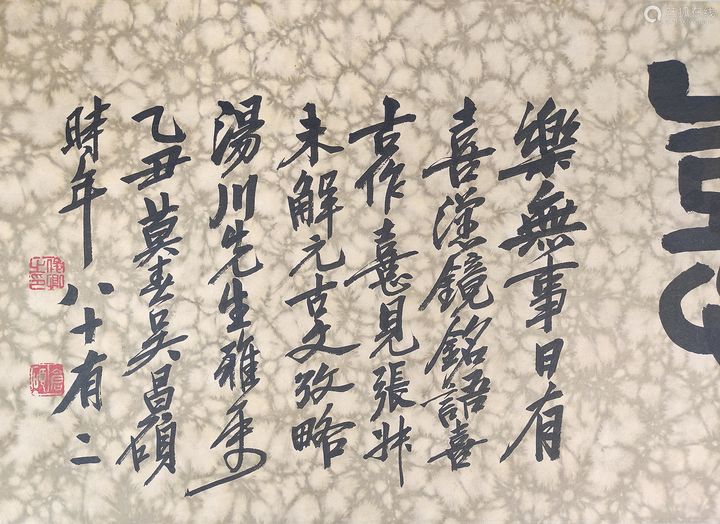 樂無事日有
喜漢鏡銘語喜
古作憙見張叔
未解元古文攷略
湯川先生雅屬
乙丑莫春吳昌碩
時年八十有二